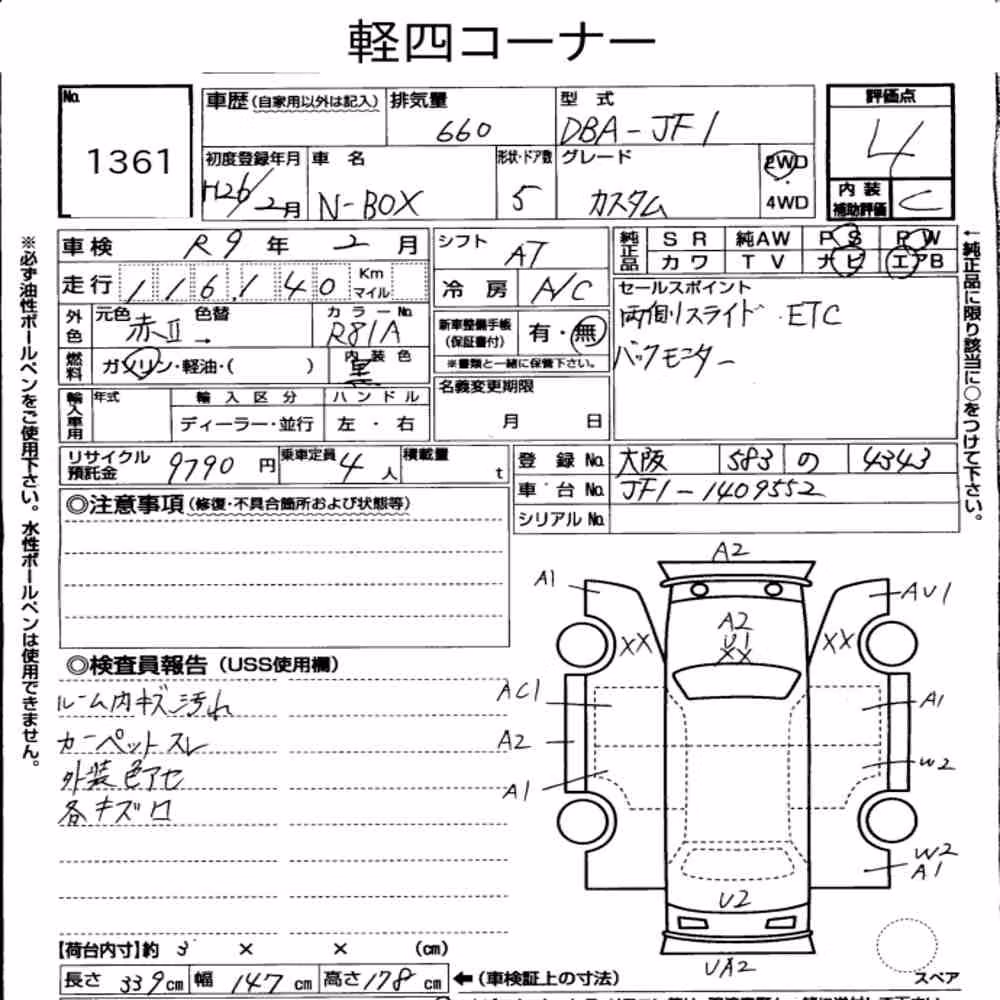 軽四コーナー
No. 1361
車歴(自家用以外は記入) 排気量 660 型式 DBA-JF1 評価点 4
初度登録年月 H26/2月 車名 N-BOX 形状・ドア数 5 グレード カスタム 2WD・4WD 内装補助評価 C
※必ず油性ボールペンをご使用下さい。水性ボールペンは使用できません。
車検 R9年 2月 シフト AT 純正品 SR 純AW PS PW
カワ TV ナビ エアB
走行 116,140 Km マイル 冷房 A/C
外色 元色 赤II 色替 → カラーNo. R81A
燃料 ガソリン・軽油・( ) 内装色 黒
新車整備手帳(保証書付) 有・無
※書類と一緒に保管下さい。
セールスポイント
両側スライド ・ETC
バックモニター
輸入車用 年式 輸入区分 ディーラー・並行 ハンドル 左・右
名義変更期限 月 日
←純正品に限り該当に○をつけて下さい。
リサイクル預託金 9790円 乗車定員 4人 積載量 t
登録No. 大阪 583 の 4343
車台No. JF1-1409552
シリアルNo.
◎注意事項(修復・不具合箇所および状態等)
◎検査員報告(USS使用欄)
ルーム内キズ汚れ
カーペットスレ
外装色アセ
各キズ ロ
A2
A1 AU1
A2
U1
XX XX XX
AC1 A1
A2 W2
A1
W2
A1
U2
UA2
スペア
【荷台内寸】約 × × (cm)
長さ 339cm 幅 147cm 高さ 178cm ←(車検証上の寸法)